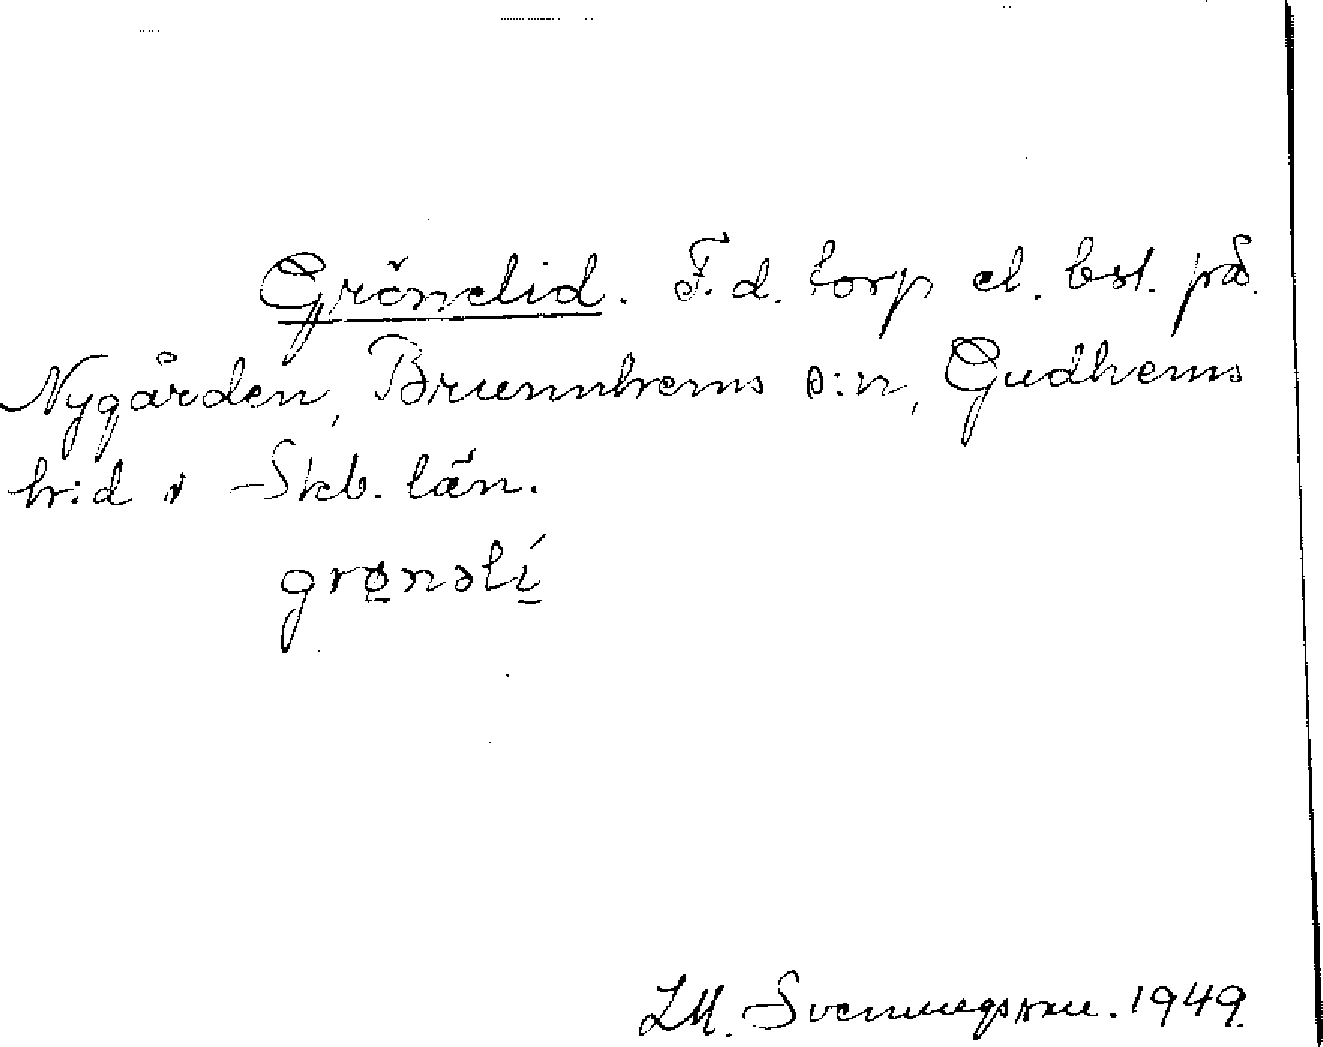 Grönelid. F.d. torp el. bst. på
Nygården, Brunnhems s:n, Gudhems
h:d i Skb. län.
grønəlí
LM. Svenungsson. 1949.